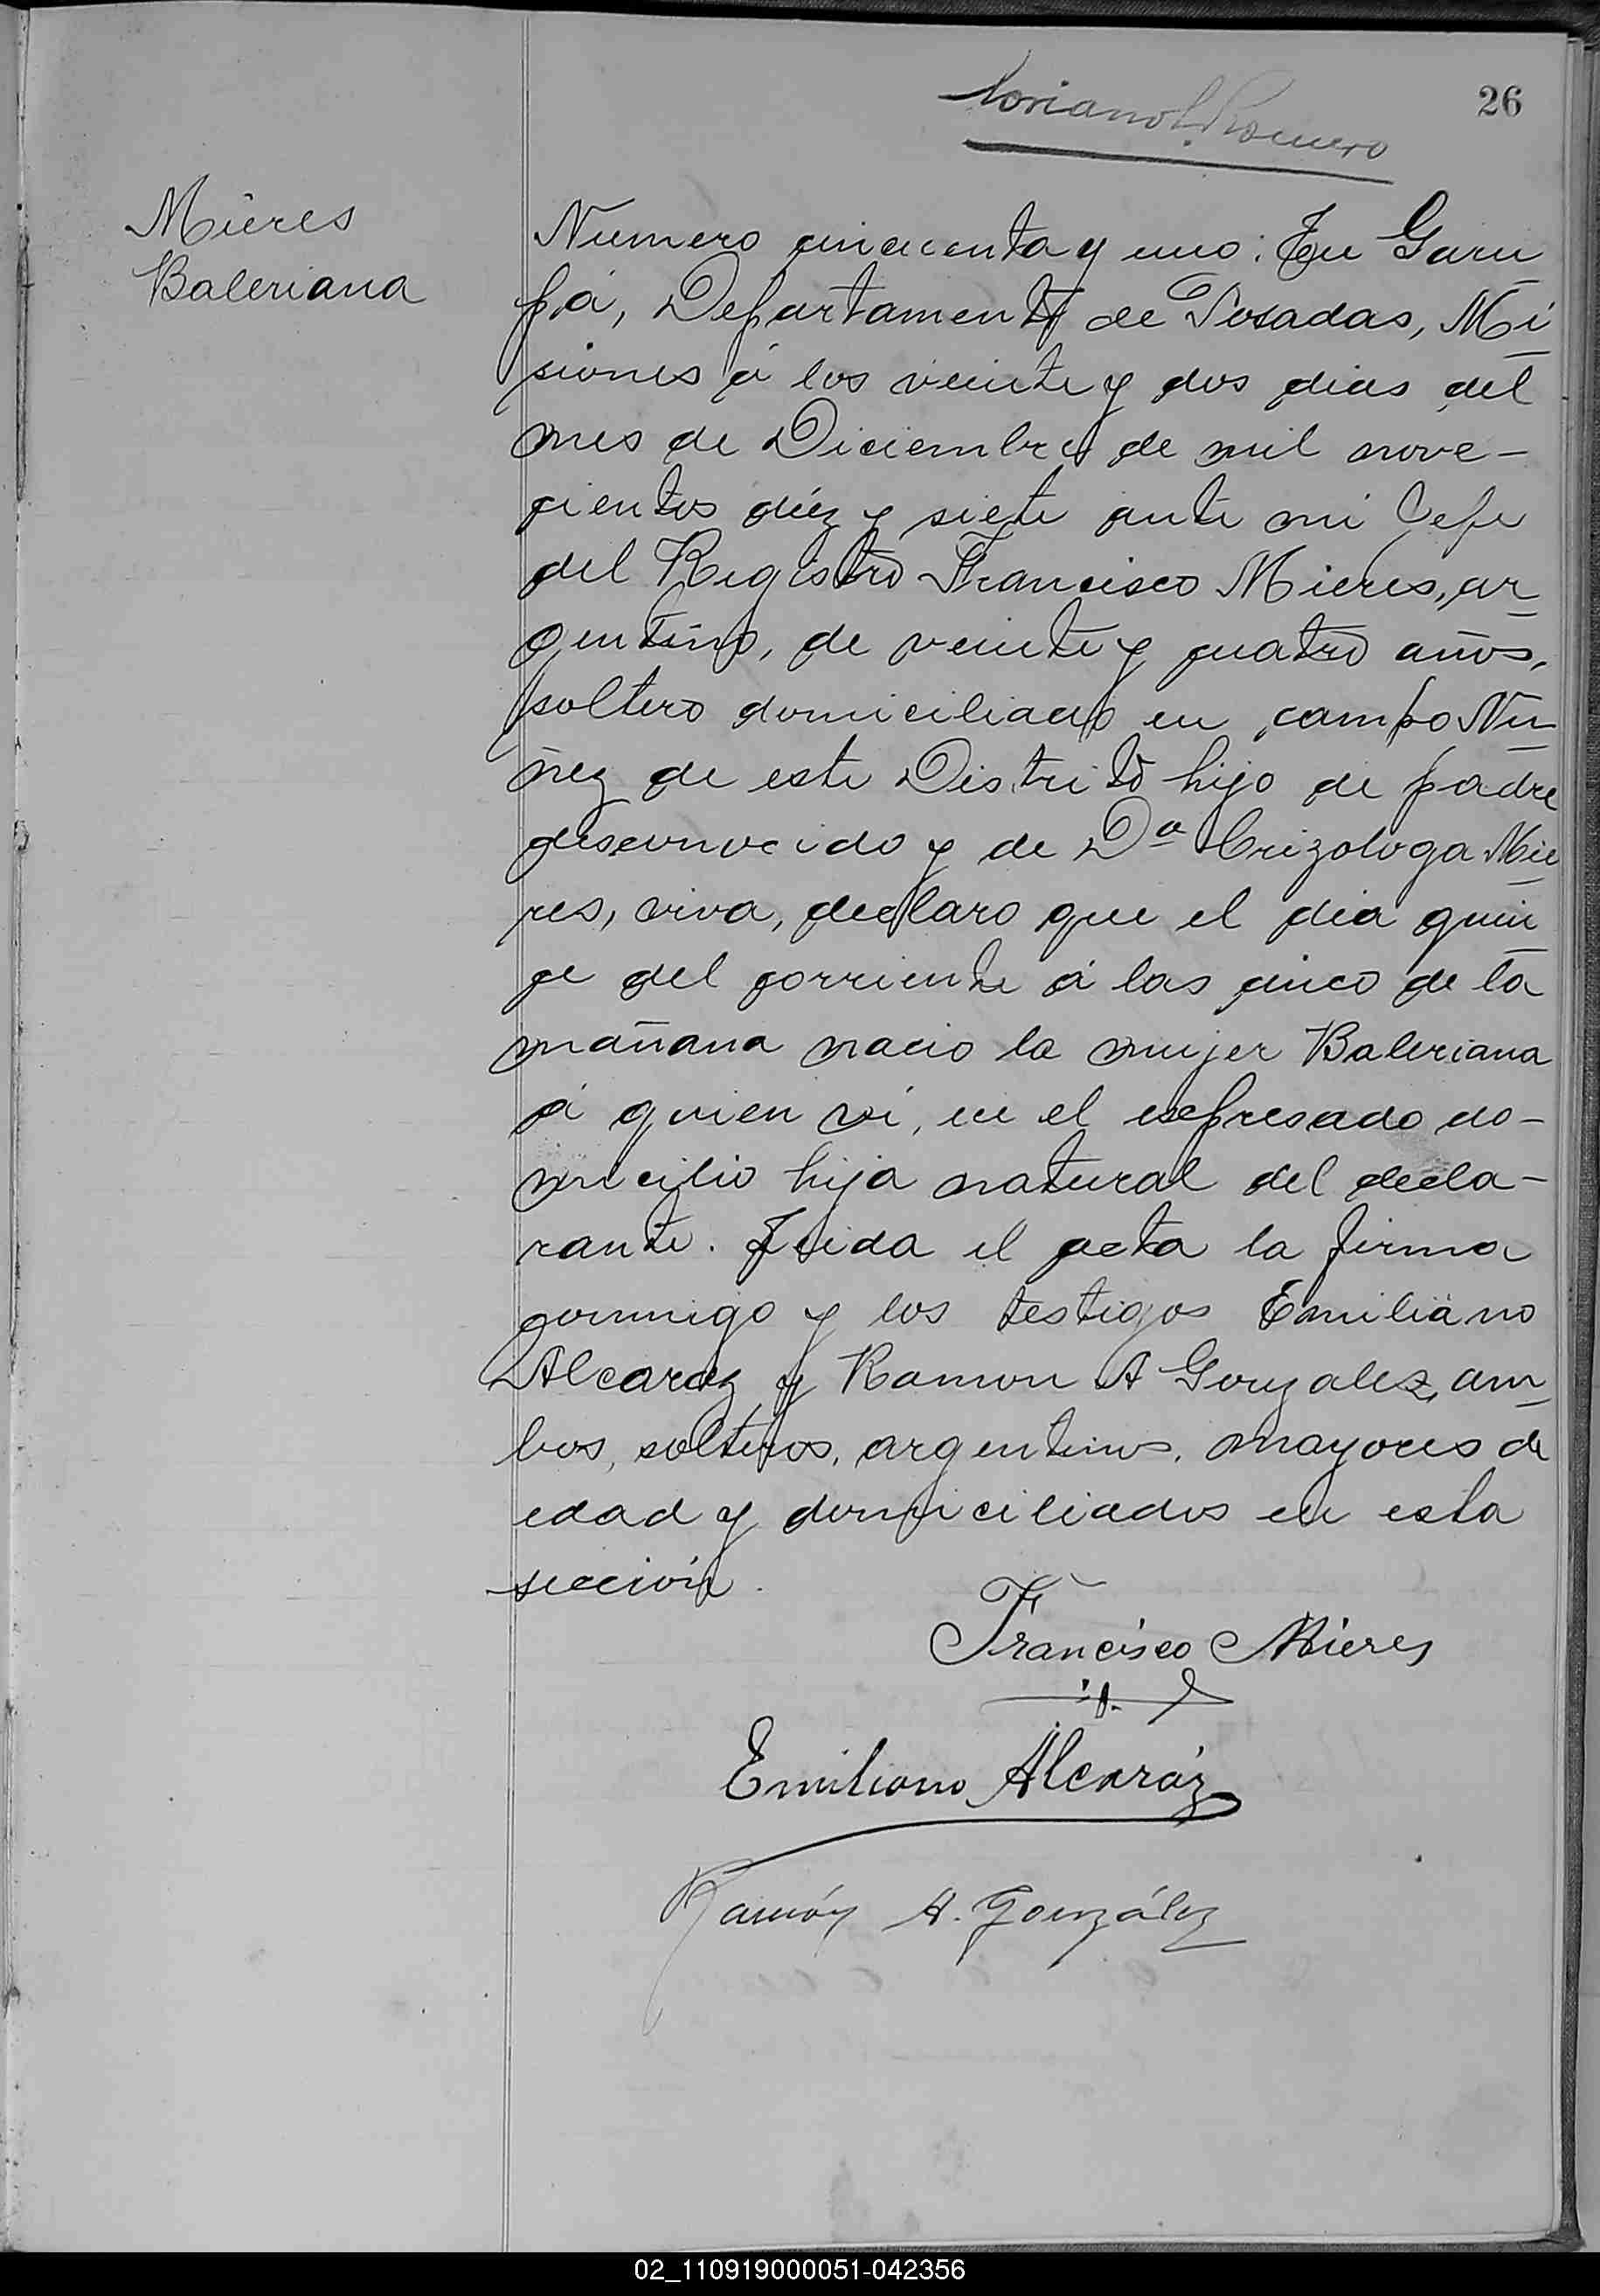 26
Soriano L. Romero
Mieres
Baleriana
Numero cincuenta y uno: En Garu
pá, Departamento de Posadas, Mi
siones á los veinte y dos dias del
mes de Diciembre de mil nove-
cientos diéz y siete ante mi Jefe
del Registro Francisco Mieres, ar
gentino, de veinte y cuatro años,
soltero domiciliado en campo Nu
ñez de este Distrito hijo de padre
desconocido y de Da Crizologa Mie
res, viva, declaro que el dia quin
ce del corriente á las cinco de la
mañana nacio la mujer Baleriana
á quien vi, en el espresado do-
micilio hija natural del decla-
rante. Leida el acta la firma
conmigo y los testigos Emiliano
Alcaraz y Ramon A Gonzalez, am
bos, solteros, argentinos, mayores de
edad y domiciliados en esta
sección.
Francisco Mieres
Emiliano Alcaráz
Ramón A. González
02_110919000051-042356